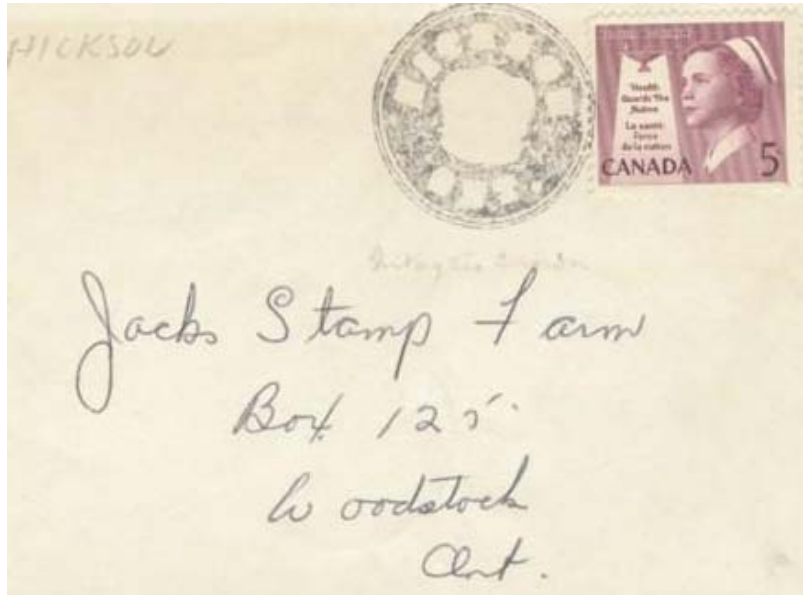 HICKSON
Health
Guards The
Nation
La santé
Force
de la nation
CANADA 5
Jacks Stamp Farm
Box 125.
Woodstock
Ont.